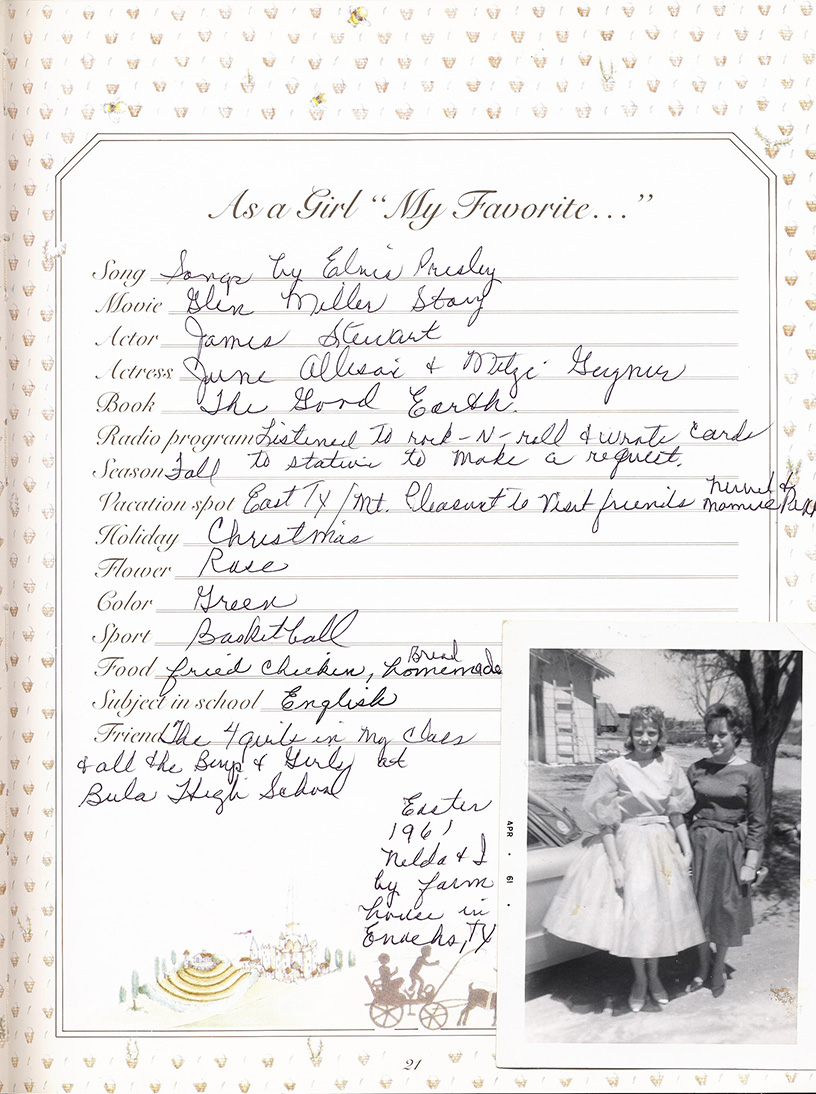 As a Girl "My Favorite..."
Song Songs by Elvis Presley
Movie Glen Miller Story
Actor James Stewart
Actress June Allison & Mitzi Geynor
Book The Good Earth.
Radio program Listened to rock-N-roll & wrote cards
Season Fall to station to make a request.
Vacation spot East Tx/Mt. Pleasant to visit friends
Holiday Christmas
Flower Rose
Color Green
Sport Basketball
Food fried chicken, homemade Bread
Subject in school English
Friend The 4 girls in my class
& all the Boys & Girls at
Bula High School
Easter
1961
Nelda & I
by farm
house in
Enochs, TX
APR • 61 •
21